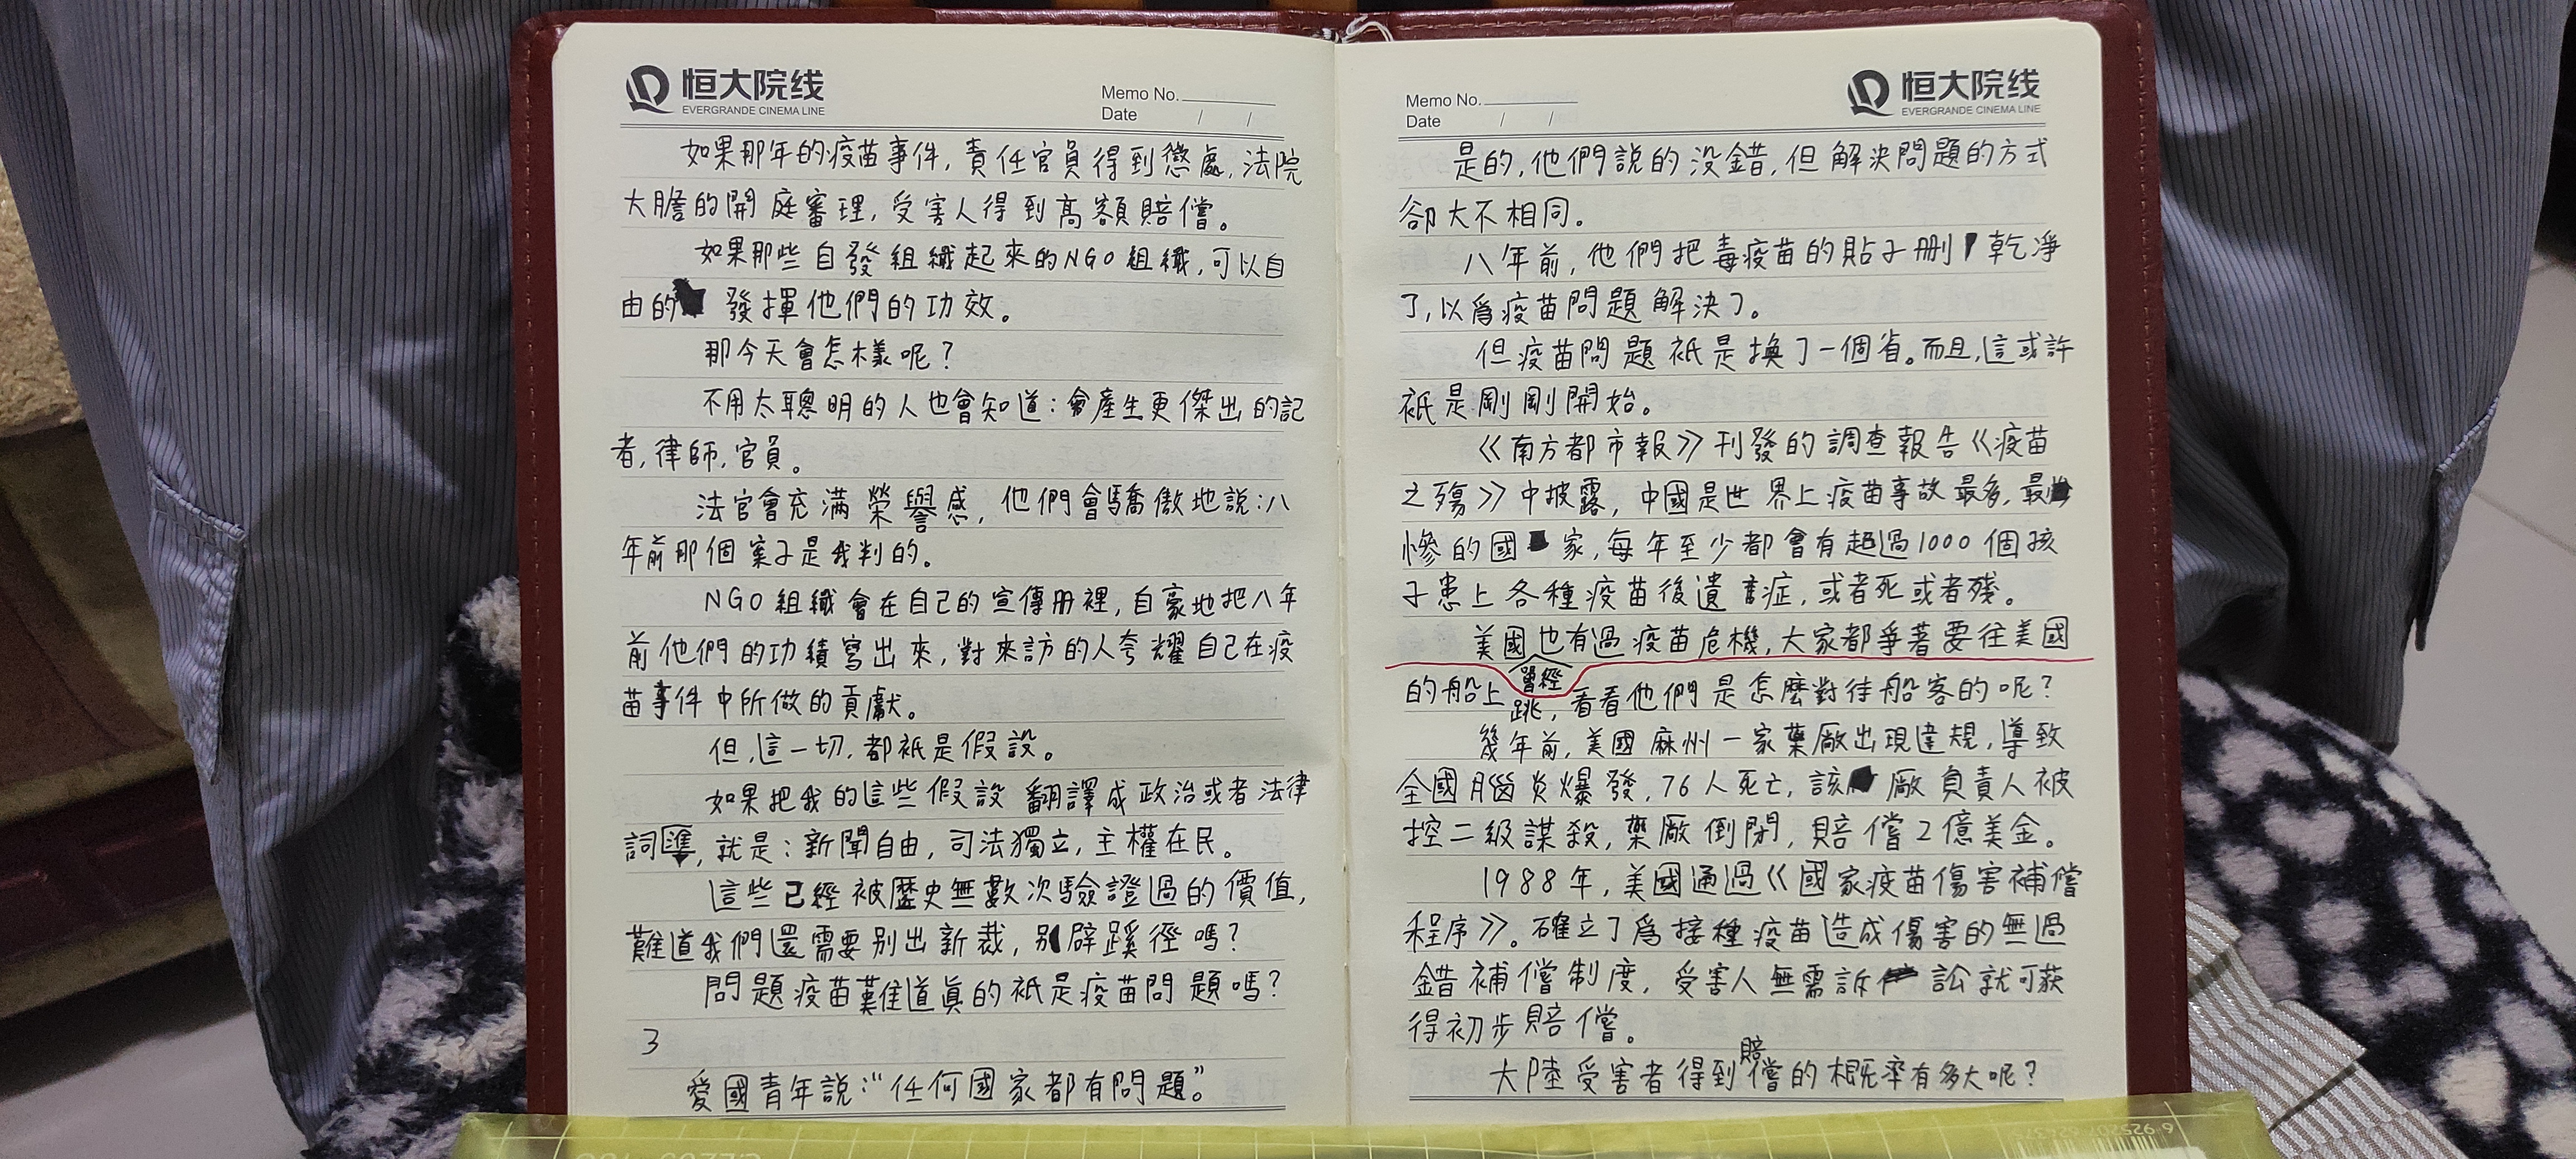 恒大院线
EVERGRANDE CINEMA LINE
Memo No.
Date / /
如果那年的疫苗事件,責任官員得到懲處,法院
大膽的開庭審理,受害人得到高額賠償。
如果那些自發組織起來的NGO組織,可以自
由的發揮他們的功效。
那今天會怎樣呢?
不用太聰明的人也會知道:會產生更傑出的記
者,律師,官員。
法官會充滿榮譽感,他們會驕傲地說:八
年前那個案子是我判的。
NGO組織會在自己的宣傳册裡,自豪地把八年
前他們的功績寫出來,對來訪的人夸耀自己在疫
苗事件中所做的貢獻。
但,這一切,都衹是假設。
如果把我的這些假設翻譯成政治或者法律
詞匯,就是:新聞自由,司法獨立,主權在民。
這些已經被歷史無數次驗證過的價值,
難道我們還需要别出新裁,别辟蹊徑嗎?
問題疫苗難道真的衹是疫苗問題嗎?
3
愛國青年說:“任何國家都有問題。”
Memo No.
Date / /
恒大院线
EVERGRANDE CINEMA LINE
是的,他們說的没錯,但解決問題的方式
卻大不相同。
八年前,他們把毒疫苗的貼子删乾凈
了,以爲疫苗問題解決了。
但疫苗問題衹是換了一個省。而且,這或許
衹是剛剛開始。
《南方都市報》刊發的調查報告《疫苗
之殤》中披露,中國是世界上疫苗事故最多,最
慘的國家,每年至少都會有超過1000個孩
子患上各種疫苗後遺症,或者死或者殘。
美國也有過疫苗危機,大家都爭著要往美國
的船上跳,看看他們曾經是怎麼對待船客的呢?
幾年前,美國麻州一家藥廠出現違規,導致
全國腦炎爆發,76人死亡,該廠負責人被
控二級謀殺,藥廠倒閉,賠償2億美金。
1988年,美國通過《國家疫苗傷害補償
程序》。確立了爲接種疫苗造成傷害的無過
錯補償制度,受害人無需訴訟就可获
得初步賠償。
大陸受害者得到賠償的概率有多大呢?